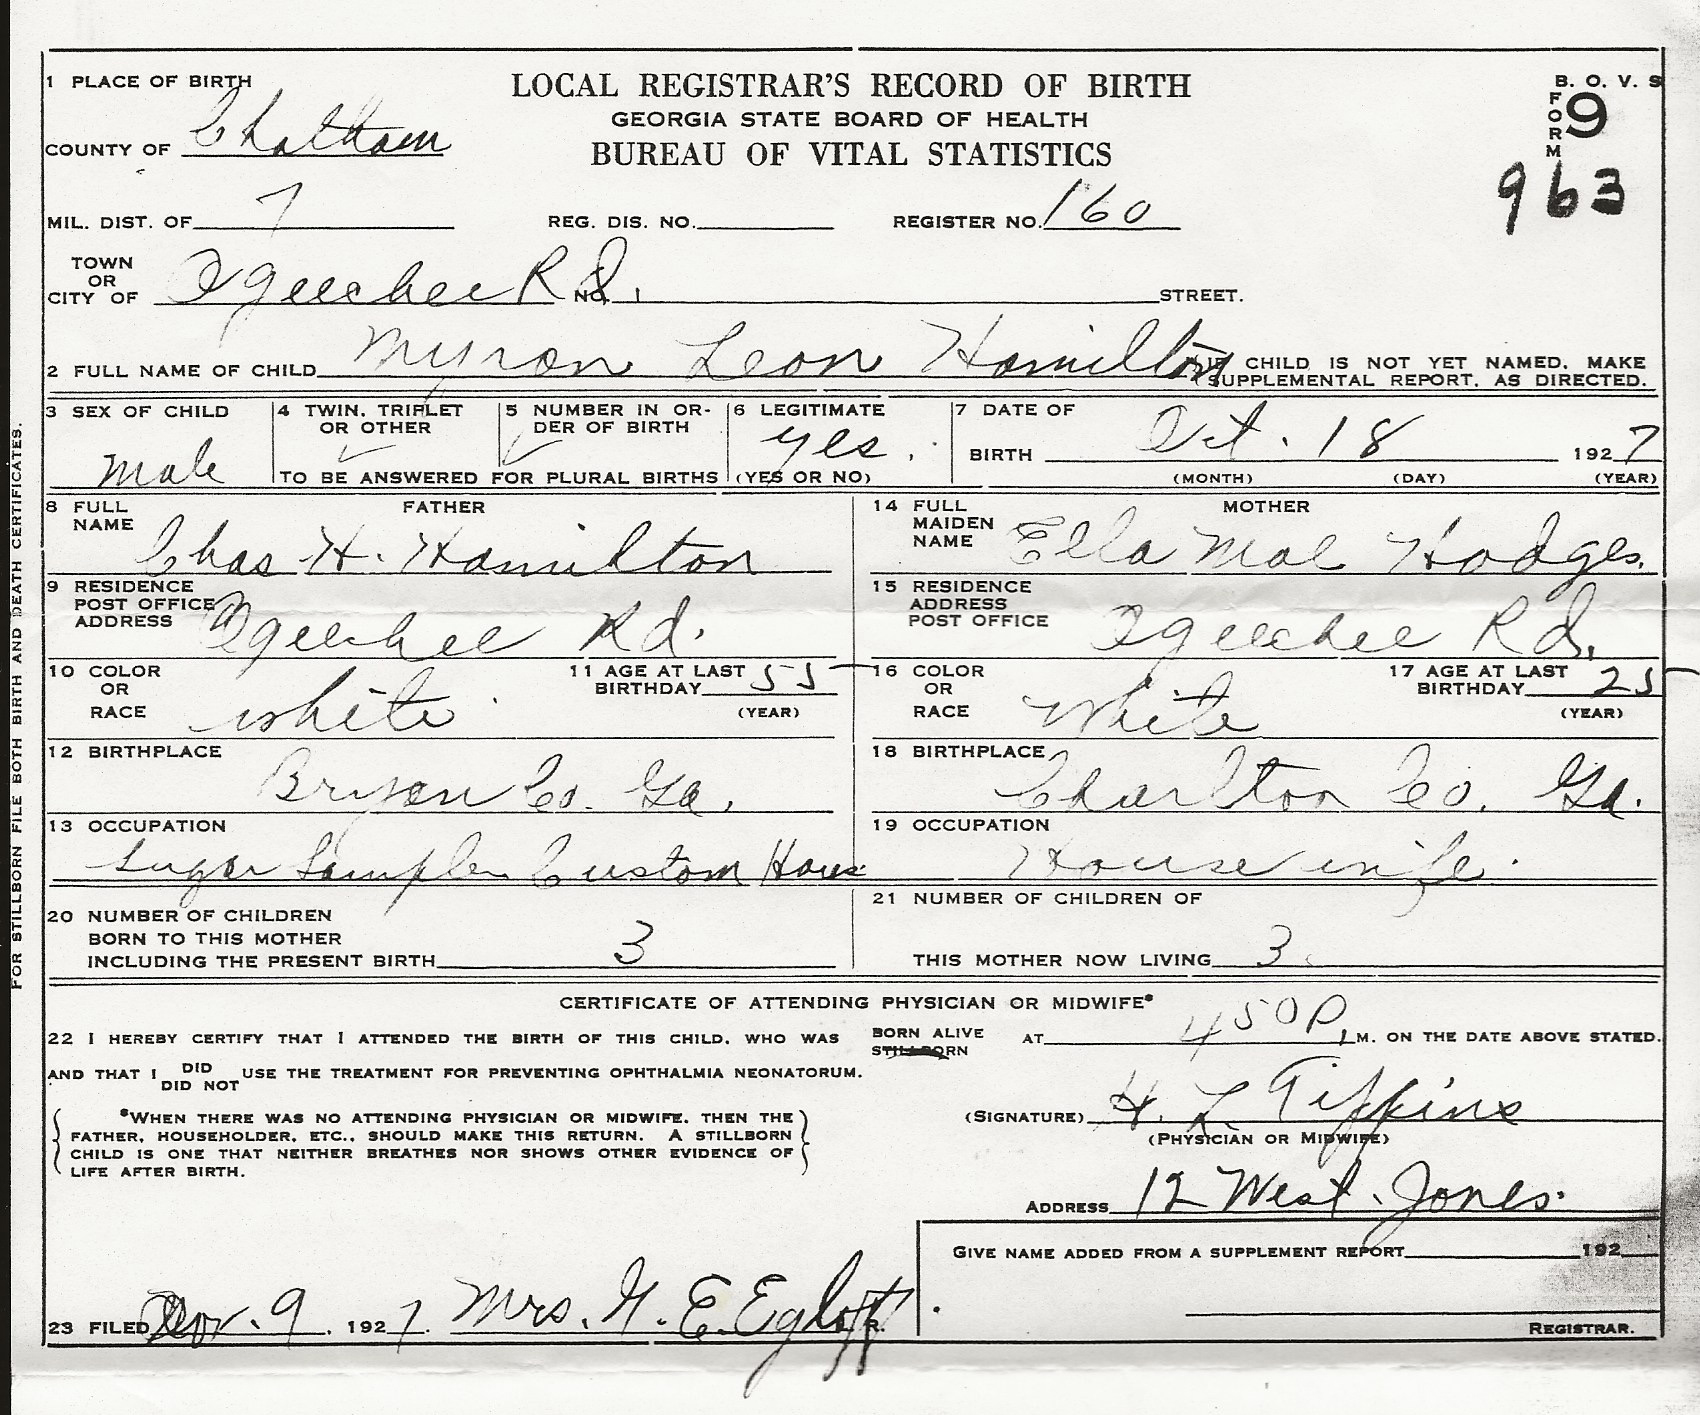 1 PLACE OF BIRTH
LOCAL REGISTRAR'S RECORD OF BIRTH
GEORGIA STATE BOARD OF HEALTH
BUREAU OF VITAL STATISTICS
B. O. V. S
FORM 9
963
COUNTY OF Chatham
MIL. DIST. OF 7 REG. DIS. NO. REGISTER NO. 160
TOWN OR CITY OF Ogeechee Rd. NO. STREET.
2 FULL NAME OF CHILD Myron Leon Hamilton IF CHILD IS NOT YET NAMED, MAKE
SUPPLEMENTAL REPORT, AS DIRECTED.
3 SEX OF CHILD
Male
4 TWIN, TRIPLET
OR OTHER
5 NUMBER IN OR-
DER OF BIRTH
TO BE ANSWERED FOR PLURAL BIRTHS
6 LEGITIMATE
yes.
(YES OR NO)
7 DATE OF
BIRTH Oct. 18 1927
(MONTH) (DAY) (YEAR)
FATHER
8 FULL
NAME Chas H. Hamilton
9 RESIDENCE
POST OFFICE
ADDRESS Ogeechee Rd.
10 COLOR
OR
RACE white
11 AGE AT LAST
BIRTHDAY 55
(YEAR)
12 BIRTHPLACE
Bryan Co. Ga.
13 OCCUPATION
Sugar Sampler Custom House
MOTHER
14 FULL
MAIDEN
NAME Ella Mae Hodges.
15 RESIDENCE
ADDRESS
POST OFFICE Ogeechee Rd.
16 COLOR
OR
RACE White
17 AGE AT LAST
BIRTHDAY 25
(YEAR)
18 BIRTHPLACE
Charlton Co. Ga.
19 OCCUPATION
House wife.
20 NUMBER OF CHILDREN
BORN TO THIS MOTHER
INCLUDING THE PRESENT BIRTH 3
21 NUMBER OF CHILDREN OF
THIS MOTHER NOW LIVING 3
CERTIFICATE OF ATTENDING PHYSICIAN OR MIDWIFE*
22 I HEREBY CERTIFY THAT I ATTENDED THE BIRTH OF THIS CHILD, WHO WAS BORN ALIVE STILLBORN AT 4 50 P. M. ON THE DATE ABOVE STATED.
AND THAT I DID DID NOT USE THE TREATMENT FOR PREVENTING OPHTHALMIA NEONATORUM.
*WHEN THERE WAS NO ATTENDING PHYSICIAN OR MIDWIFE, THEN THE
FATHER, HOUSEHOLDER, ETC., SHOULD MAKE THIS RETURN. A STILLBORN
CHILD IS ONE THAT NEITHER BREATHES NOR SHOWS OTHER EVIDENCE OF
LIFE AFTER BIRTH.
(SIGNATURE) H. L. Tippins
(PHYSICIAN OR MIDWIFE)
ADDRESS 12 West. Jones.
GIVE NAME ADDED FROM A SUPPLEMENT REPORT 192
REGISTRAR.
23 FILED Nov. 9, 1927. Mrs. H. E. Egloff R.
FOR STILLBORN FILE BOTH BIRTH AND DEATH CERTIFICATES.